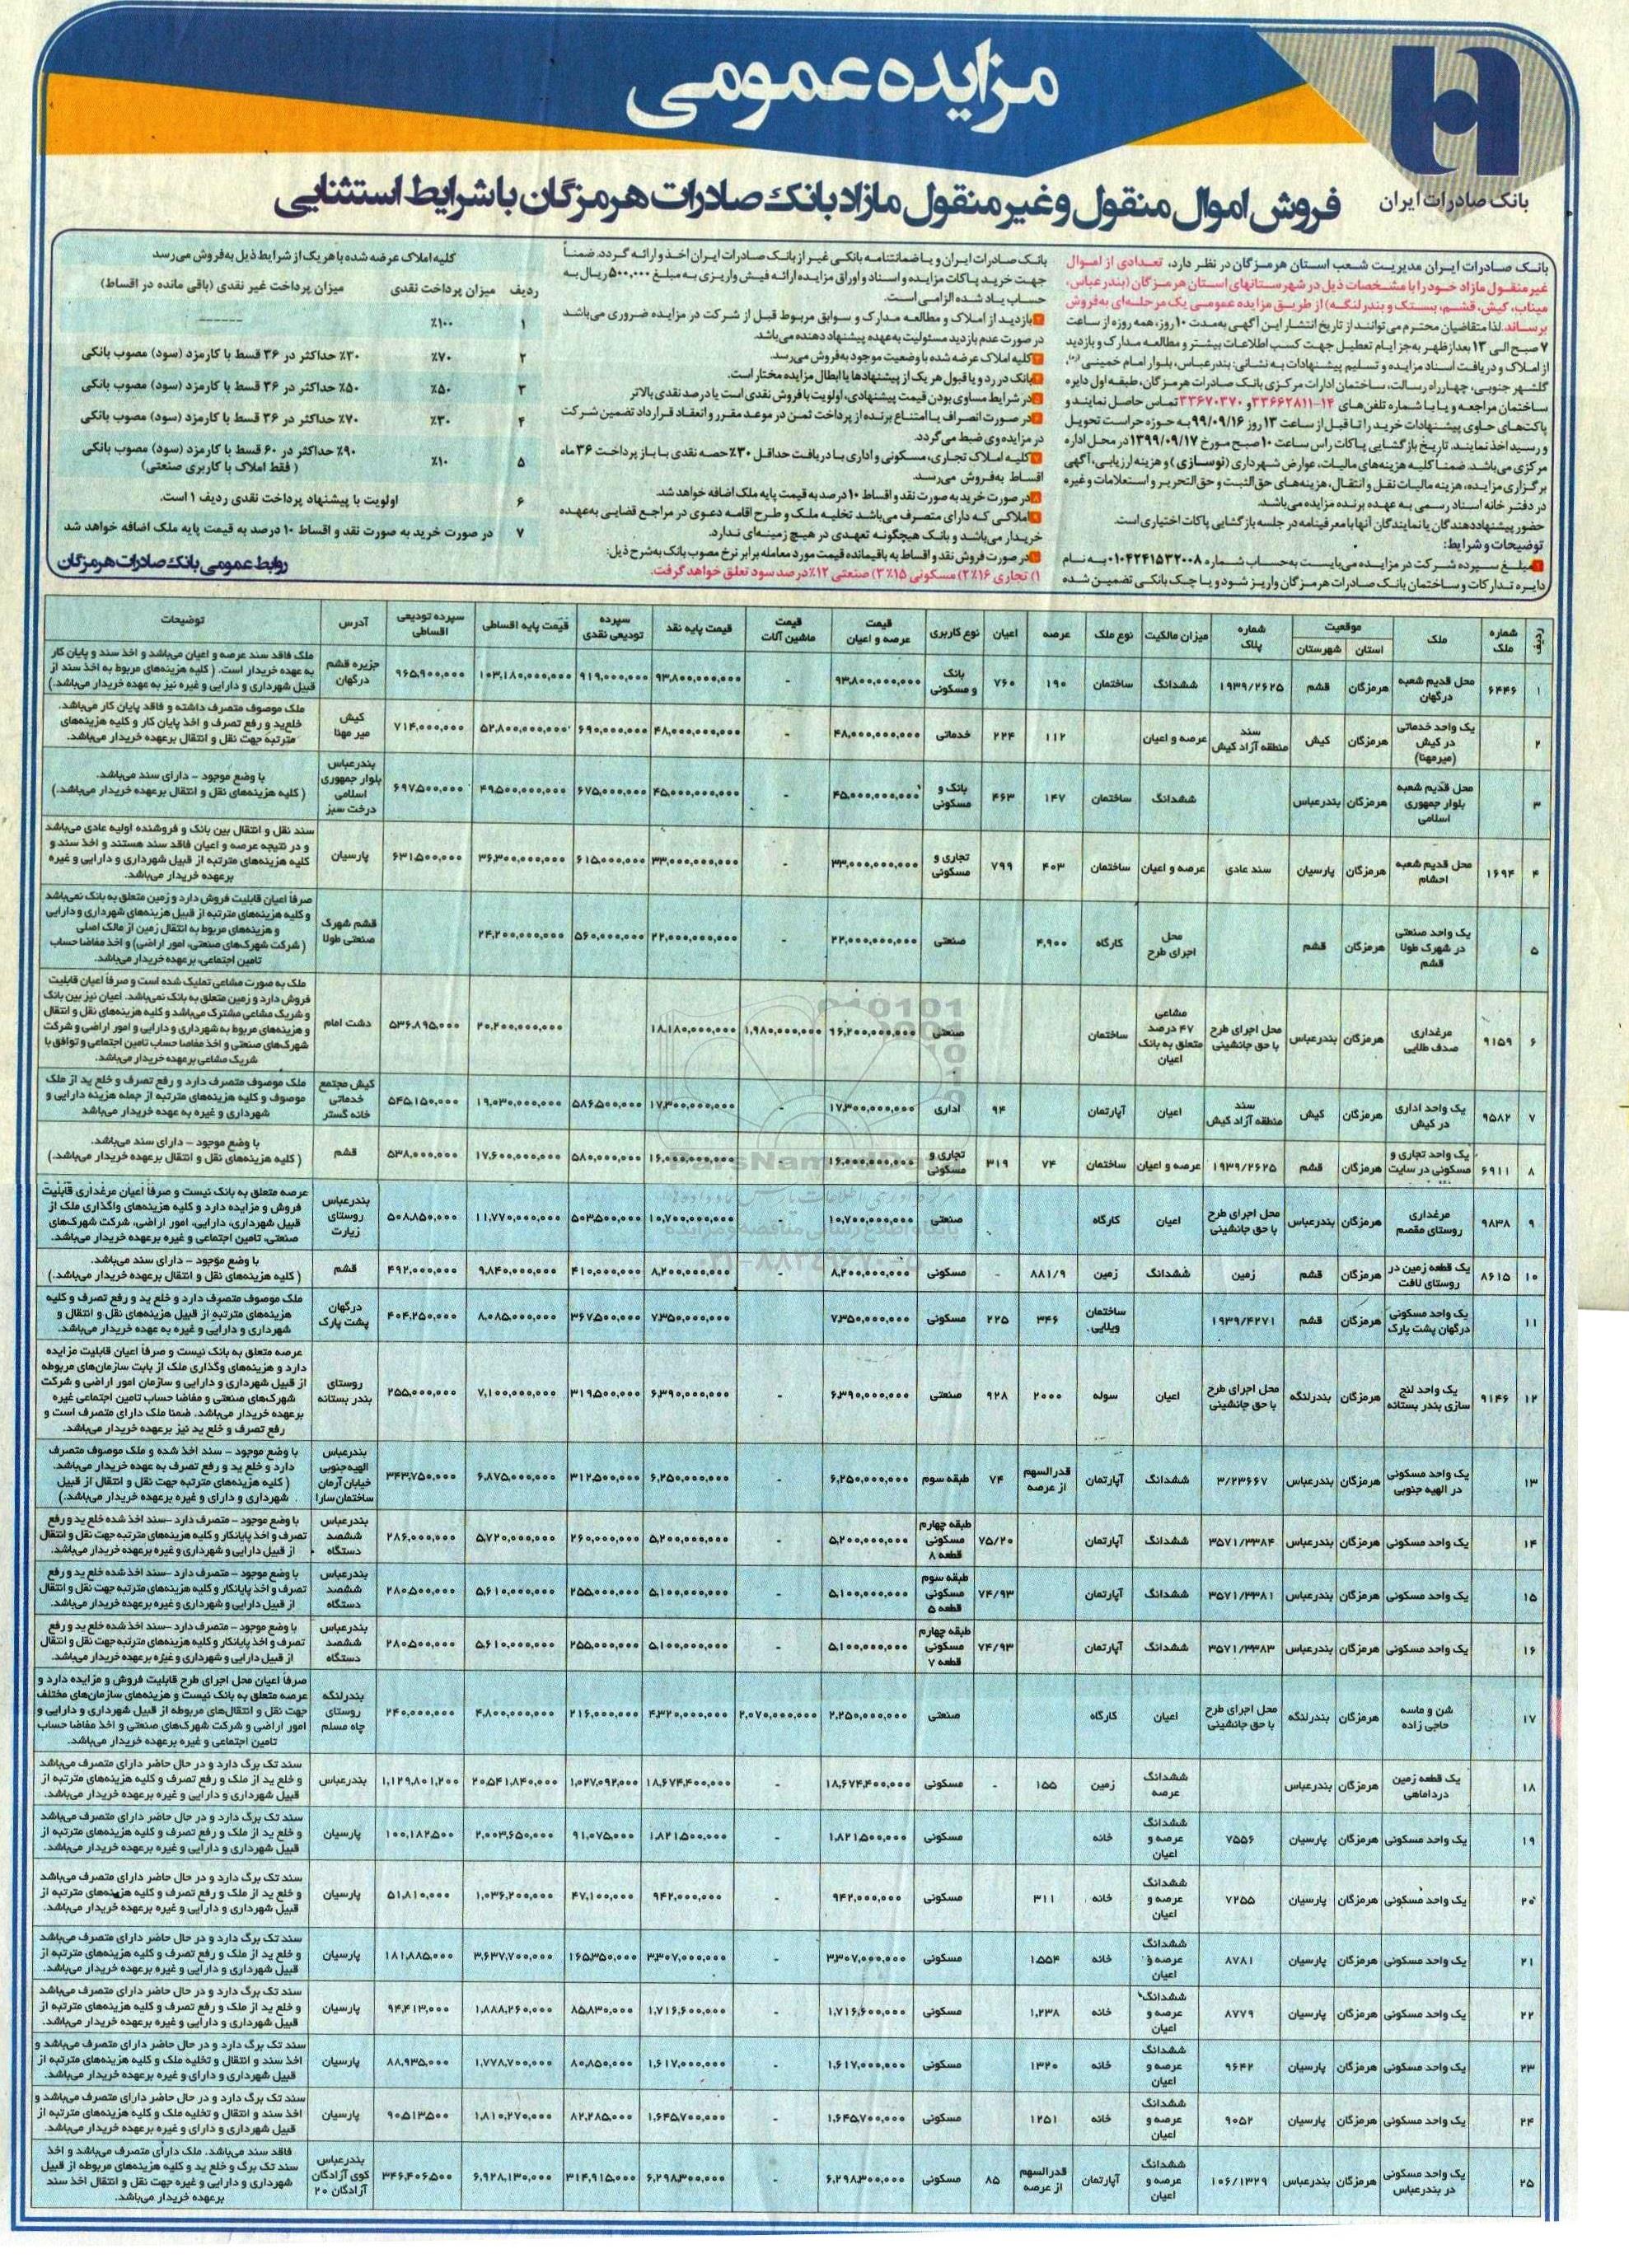 مزایده عمومی
بانک صادرات ایران
فروش اموال منقول و غیر منقول مازاد بانک صادرات هرمزگان با شرایط استثنایی
بانک صادرات ایران مدیریت شعب استان هرمزگان در نظر دارد، تعدادی از اموال
غیر منقول مازاد خود را با مشخصات ذیل در شهرستانهای استان هرمزگان (بندرعباس،
میناب، کیش، قشم، بستک و بندرلنگه) از طریق مزایده عمومی یک مرحله‌ای به‌فروش
برساند. لذا متقاضیان محترم می‌توانند از تاریخ انتشار این آگهی به‌مدت ۱۰ روز، همه روزه از ساعت
۷ صبح الی ۱۳ بعدازظهر به‌جز ایام تعطیل جهت کسب اطلاعات بیشتر و مطالعه مدارک و بازدید
از املاک و دریافت اسناد مزایده و تسلیم پیشنهادات به نشانی: بندرعباس، بلوار امام خمینی (ره)،
گلشهر جنوبی، چهارراه رسالت، ساختمان ادارات مرکزی بانک صادرات هرمزگان، طبقه اول دایره
ساختمان مراجعه و یا با شماره تلفن‌های ۱۴-۳۳۶۶۲۸۱۱ و ۳۳۶۷۰۳۷۰ تماس حاصل نمایند و
پاکت‌های حاوی پیشنهادات خرید را تا قبل از ساعت ۱۳ روز ۹۹/۰۹/۱۶ به حوزه حراست تحویل
و رسید اخذ نمایند. تاریخ بازگشایی پاکات راس ساعت ۱۰ صبح مورخ ۱۳۹۹/۰۹/۱۷ در محل اداره
مرکزی می‌باشد. ضمناً کلیه هزینه‌های مالیات، عوارض شهرداری (نوسازی) و هزینه ارزیابی، آگهی
برگزاری مزایده، هزینه مالیات نقل و انتقال، هزینه‌های حق‌الثبت و حق‌التحریر و استعلامات و غیره
در دفتر خانه اسناد رسمی به عهده برنده مزایده می‌باشد.
حضور پیشنهاددهندگان یا نمایندگان آنها با معرفینامه در جلسه بازگشایی پاکات اختیاری است.
توضیحات و شرایط:
۱ مبلغ سپرده شرکت در مزایده می‌بایست به‌حساب شماره ۰۱۰۴۲۴۱۵۳۲۰۰۸ به نام
دایره تدارکات و ساختمان بانک صادرات هرمزگان واریز شود و یا چک بانکی تضمین شده
بانک صادرات ایران و یا ضمانتنامه بانکی غیر از بانک صادرات ایران اخذ و ارائه گردد. ضمناً
جهت خرید پاکات مزایده و اسناد و اوراق مزایده ارائه فیش واریزی به مبلغ ۵۰۰,۰۰۰ ریال به
حساب یاد شده الزامی است.
۲ بازدید از املاک و مطالعه مدارک و سوابق مربوط قبل از شرکت در مزایده ضروری می‌باشد
در صورت عدم بازدید مسئولیت به‌عهده پیشنهاد دهنده می‌باشد.
۳ کلیه املاک عرضه شده با وضعیت موجود به‌فروش می‌رسد.
۴ بانک در رد و یا قبول هر یک از پیشنهادها یا ابطال مزایده مختار است.
۵ در شرایط مساوی بودن قیمت پیشنهادی، اولویت با فروش نقدی است یا درصد نقدی بالاتر
۶ در صورت انصراف یا امتناع برنده از پرداخت ثمن در موعد مقرر و انعقاد قرارداد تضمین شرکت
در مزایده وی ضبط می‌گردد.
۷ کلیه املاک تجاری، مسکونی و اداری با دریافت حداقل ۳۰٪ حصه نقدی با باز پرداخت ۳۶ ماه
اقساط به‌فروش می‌رسد.
۸ در صورت خرید به صورت نقد و اقساط ۱۰ درصد به قیمت پایه ملک اضافه خواهد شد.
۹ املاکی که دارای متصرف می‌باشد تخلیه ملک و طرح اقامه دعوی در مراجع قضایی به‌عهده
خریدار می‌باشد و بانک هیچگونه تعهدی در هیچ زمینه‌ای ندارد.
۱۰ در صورت فروش نقد و اقساط به باقیمانده قیمت مورد معامله برابر نرخ مصوب بانک به‌شرح ذیل:
۱) تجاری ۱۶٪ ۲) مسکونی ۱۵٪ ۳) صنعتی ۱۲٪ درصد سود تعلق خواهد گرفت.
کلیه املاک عرضه شده با هر یک از شرایط ذیل به‌فروش می‌رسد
ردیف میزان پرداخت نقدی میزان پرداخت غیر نقدی (باقی مانده در اقساط)
۱ ۱۰۰٪ ------
۲ ۷۰٪ ۳۰٪ حداکثر در ۳۶ قسط با کارمزد (سود) مصوب بانکی
۳ ۵۰٪ ۵۰٪ حداکثر در ۳۶ قسط با کارمزد (سود) مصوب بانکی
۴ ۳۰٪ ۷۰٪ حداکثر در ۳۶ قسط با کارمزد (سود) مصوب بانکی
۵ ۱۰٪ ۹۰٪ حداکثر در ۶۰ قسط با کارمزد (سود) مصوب بانکی
(فقط املاک با کاربری صنعتی)
۶ اولویت با پیشنهاد پرداخت نقدی ردیف ۱ است.
۷ در صورت خرید به صورت نقد و اقساط ۱۰ درصد به قیمت پایه ملک اضافه خواهد شد
روابط عمومی بانک صادرات هرمزگان
ردیف شماره ملک ملک موقعیت استان شهرستان شماره پلاک میزان مالکیت نوع ملک عرصه اعیان نوع کاربری قیمت عرصه و اعیان قیمت ماشین آلات قیمت پایه نقد سپرده تودیعی نقدی قیمت پایه اقساطی سپرده تودیعی اقساطی آدرس توضیحات
۱ ۶۴۴۶ محل قدیم شعبه درگهان هرمزگان قشم ۱۹۳۹/۲۶۲۵ ششدانگ ساختمان ۱۹۰ ۷۶۰ بانک و مسکونی ۹۳,۸۰۰,۰۰۰,۰۰۰ - ۹۳,۸۰۰,۰۰۰,۰۰۰ ۹۱۹,۰۰۰,۰۰۰ ۱۰۳,۱۸۰,۰۰۰,۰۰۰ ۹۶۵,۹۰۰,۰۰۰ جزیره قشم درگهان ملک فاقد سند عرصه و اعیان می‌باشد و اخذ سند و پایان کار به عهده خریدار است. (کلیه هزینه‌های مربوط به اخذ سند از قبیل شهرداری و دارایی و غیره نیز به عهده خریدار می‌باشد.)
۲ یک واحد خدماتی در کیش (میرمهنا) هرمزگان کیش سند منطقه آزاد کیش عرصه و اعیان ۱۱۲ ۲۲۴ خدماتی ۴۸,۰۰۰,۰۰۰,۰۰۰ - ۴۸,۰۰۰,۰۰۰,۰۰۰ ۶۹۰,۰۰۰,۰۰۰ ۵۲,۸۰۰,۰۰۰,۰۰۰ ۷۱۴,۰۰۰,۰۰۰ کیش میر مهنا ملک موصوف متصرف داشته و فاقد پایان کار می‌باشد. خلع‌ید و رفع تصرف و اخذ پایان کار و کلیه هزینه‌های مترتبه جهت نقل و انتقال برعهده خریدار می‌باشد.
۳ محل قدیم شعبه بلوار جمهوری اسلامی هرمزگان بندرعباس ششدانگ ساختمان ۱۴۷ ۴۶۳ بانک و مسکونی ۴۵,۰۰۰,۰۰۰,۰۰۰ - ۴۵,۰۰۰,۰۰۰,۰۰۰ ۶۷۵,۰۰۰,۰۰۰ ۴۹,۵۰۰,۰۰۰,۰۰۰ ۶۹۷,۵۰۰,۰۰۰ بندرعباس بلوار جمهوری اسلامی درخت سبز با وضع موجود - دارای سند می‌باشد. (کلیه هزینه‌های نقل و انتقال برعهده خریدار می‌باشد.)
۴ ۱۶۹۴ محل قدیم شعبه احشام هرمزگان پارسیان سند عادی عرصه و اعیان ساختمان ۴۰۳ ۷۹۹ تجاری و مسکونی ۳۳,۰۰۰,۰۰۰,۰۰۰ - ۳۳,۰۰۰,۰۰۰,۰۰۰ ۶۱۵,۰۰۰,۰۰۰ ۳۶,۳۰۰,۰۰۰,۰۰۰ ۶۳۱,۵۰۰,۰۰۰ پارسیان سند نقل و انتقال بین بانک و فروشنده اولیه عادی می‌باشد و در نتیجه عرصه و اعیان فاقد سند هستند و اخذ سند و کلیه هزینه‌های مترتبه از قبیل شهرداری و دارایی و غیره برعهده خریدار می‌باشد.
۵ یک واحد صنعتی در شهرک طولا قشم هرمزگان قشم محل اجرای طرح کارگاه ۴,۹۰۰ صنعتی ۲۲,۰۰۰,۰۰۰,۰۰۰ - ۲۲,۰۰۰,۰۰۰,۰۰۰ ۵۶۰,۰۰۰,۰۰۰ ۲۴,۲۰۰,۰۰۰,۰۰۰ قشم شهرک صنعتی طولا صرفاً اعیان قابلیت فروش دارد و زمین متعلق به بانک نمی‌باشد و کلیه هزینه‌های مترتبه از قبیل هزینه‌های شهرداری و دارایی و هزینه‌های مربوط به انتقال زمین از مالک اصلی (شرکت شهرک‌های صنعتی، امور اراضی) و اخذ مفاصا حساب تامین اجتماعی، برعهده خریدار می‌باشد.
۶ ۹۱۵۹ مرغداری صدف طلایی هرمزگان بندرعباس محل اجرای طرح با حق جانشینی مشاعی ۴۷ درصد متعلق به بانک اعیان ساختمان صنعتی ۱۶,۲۰۰,۰۰۰,۰۰۰ ۱,۹۸۰,۰۰۰,۰۰۰ ۱۸,۱۸۰,۰۰۰,۰۰۰ ۲۰,۲۰۰,۰۰۰,۰۰۰ ۵۳۶,۸۹۵,۰۰۰ دشت امام ملک به صورت مشاعی تملیک شده است و صرفاً اعیان قابلیت فروش دارد و زمین متعلق به بانک نمی‌باشد. اعیان نیز بین بانک و شریک مشاعی مشترک می‌باشد و کلیه هزینه‌های نقل و انتقال و هزینه‌های مربوط به شهرداری و دارایی و امور اراضی و شرکت شهرک‌های صنعتی و اخذ مفاصا حساب تامین اجتماعی و توافق با شریک مشاعی برعهده خریدار می‌باشد.
۷ ۹۵۸۲ یک واحد اداری در کیش هرمزگان کیش سند منطقه آزاد کیش اعیان آپارتمان ۹۴ اداری ۱۷,۳۰۰,۰۰۰,۰۰۰ - ۱۷,۳۰۰,۰۰۰,۰۰۰ ۵۸۶,۵۰۰,۰۰۰ ۱۹,۰۳۰,۰۰۰,۰۰۰ ۵۴۵,۱۵۰,۰۰۰ کیش مجتمع خدماتی خانه گستر ملک موصوف متصرف دارد و رفع تصرف و خلع ید از ملک موصوف و کلیه هزینه‌های مترتبه از جمله هزینه دارایی و شهرداری و غیره به عهده خریدار می‌باشد
۸ ۶۹۱۱ یک واحد تجاری و مسکونی در سایت هرمزگان قشم ۱۹۳۹/۲۶۲۵ عرصه و اعیان ساختمان ۷۴ ۳۱۹ تجاری و مسکونی ۱۶,۰۰۰,۰۰۰,۰۰۰ - ۱۶,۰۰۰,۰۰۰,۰۰۰ ۵۸۰,۰۰۰,۰۰۰ ۱۷,۶۰۰,۰۰۰,۰۰۰ ۵۳۸,۰۰۰,۰۰۰ قشم با وضع موجود - دارای سند می‌باشد. (کلیه هزینه‌های نقل و انتقال برعهده خریدار می‌باشد.)
۹ ۹۸۳۸ مرغداری روستای مقصم هرمزگان بندرعباس محل اجرای طرح با حق جانشینی اعیان کارگاه صنعتی ۱۰,۷۰۰,۰۰۰,۰۰۰ - ۱۰,۷۰۰,۰۰۰,۰۰۰ ۵۰۳,۵۰۰,۰۰۰ ۱۱,۷۷۰,۰۰۰,۰۰۰ ۵۰۸,۸۵۰,۰۰۰ بندرعباس روستای زیارت عرصه متعلق به بانک نیست و صرفاً اعیان مرغداری قابلیت فروش و مزایده دارد و کلیه هزینه‌های واگذاری ملک از قبیل شهرداری، دارایی، امور اراضی، شرکت شهرک‌های صنعتی، تامین اجتماعی و غیره برعهده خریدار می‌باشد.
۱۰ ۸۶۱۵ یک قطعه زمین در روستای لافت هرمزگان قشم زمین ششدانگ زمین ۸۸۱/۹ - مسکونی ۸,۲۰۰,۰۰۰,۰۰۰ - ۸,۲۰۰,۰۰۰,۰۰۰ ۴۱۰,۰۰۰,۰۰۰ ۹,۸۴۰,۰۰۰,۰۰۰ ۴۹۲,۰۰۰,۰۰۰ قشم با وضع موجود - دارای سند می‌باشد. (کلیه هزینه‌های نقل و انتقال برعهده خریدار می‌باشد.)
۱۱ یک واحد مسکونی درگهان پشت پارک هرمزگان قشم ۱۹۳۹/۴۲۷۱ ساختمان ویلایی ۳۴۶ ۲۲۵ مسکونی ۷,۳۵۰,۰۰۰,۰۰۰ ۷,۳۵۰,۰۰۰,۰۰۰ ۳۶۷,۵۰۰,۰۰۰ ۸,۰۸۵,۰۰۰,۰۰۰ ۴۰۴,۲۵۰,۰۰۰ درگهان پشت پارک ملک موصوف متصرف دارد و خلع ید و رفع تصرف و کلیه هزینه‌های مترتبه از قبیل هزینه‌های نقل و انتقال و شهرداری و دارایی و غیره به عهده خریدار می‌باشد.
۱۲ ۹۱۴۶ یک واحد لنج سازی بندر بستانه هرمزگان بندرلنگه محل اجرای طرح با حق جانشینی اعیان سوله ۲۰۰۰ ۹۲۸ صنعتی ۶,۳۹۰,۰۰۰,۰۰۰ - ۶,۳۹۰,۰۰۰,۰۰۰ ۳۱۹,۵۰۰,۰۰۰ ۷,۱۰۰,۰۰۰,۰۰۰ ۲۵۵,۰۰۰,۰۰۰ روستای بندر بستانه عرصه متعلق به بانک نیست و صرفاً اعیان قابلیت مزایده دارد و هزینه‌های وگذاری ملک از بابت سازمان‌های مربوطه از قبیل شهرداری و دارایی و سازمان امور اراضی و شرکت شهرک‌های صنعتی و مفاصا حساب تامین اجتماعی غیره برعهده خریدار می‌باشد. ضمنا ملک دارای متصرف است و رفع تصرف و خلع ید نیز برعهده خریدار می‌باشد.
۱۳ یک واحد مسکونی در الهیه جنوبی هرمزگان بندرعباس ۳/۲۳۶۶۷ ششدانگ آپارتمان قدرالسهم از عرصه ۷۴ طبقه سوم ۶,۲۵۰,۰۰۰,۰۰۰ - ۶,۲۵۰,۰۰۰,۰۰۰ ۳۱۲,۵۰۰,۰۰۰ ۶,۸۷۵,۰۰۰,۰۰۰ ۳۴۳,۷۵۰,۰۰۰ بندرعباس الهیه جنوبی خیابان آرمان ساختمان سارا با وضع موجود - سند اخذ شده و ملک موصوف متصرف دارد و خلع ید و رفع تصرف به عهده خریدار می‌باشد. (کلیه هزینه‌های مترتبه جهت نقل و انتقال از قبیل شهرداری و دارای و غیره برعهده خریدار می‌باشد.)
۱۴ یک واحد مسکونی هرمزگان بندرعباس ۳۵۷۱/۳۳۸۴ ششدانگ آپارتمان ۷۵/۲۰ طبقه چهارم مسکونی قطعه ۸ ۵,۲۰۰,۰۰۰,۰۰۰ - ۵,۲۰۰,۰۰۰,۰۰۰ ۲۶۰,۰۰۰,۰۰۰ ۵,۷۲۰,۰۰۰,۰۰۰ ۲۸۶,۰۰۰,۰۰۰ بندرعباس ششصد دستگاه با وضع موجود - متصرف دارد -سند اخذ شده خلع ید و رفع تصرف و اخذ پایانکار و کلیه هزینه‌های مترتبه جهت نقل و انتقال از قبیل دارایی و شهرداری و غیره برعهده خریدار می‌باشد.
۱۵ یک واحد مسکونی هرمزگان بندرعباس ۳۵۷۱/۳۳۸۱ ششدانگ آپارتمان ۷۴/۹۳ طبقه سوم مسکونی قطعه ۵ ۵,۱۰۰,۰۰۰,۰۰۰ - ۵,۱۰۰,۰۰۰,۰۰۰ ۲۵۵,۰۰۰,۰۰۰ ۵,۶۱۰,۰۰۰,۰۰۰ ۲۸۰,۵۰۰,۰۰۰ بندرعباس ششصد دستگاه با وضع موجود - متصرف دارد -سند اخذ شده خلع ید و رفع تصرف و اخذ پایانکار و کلیه هزینه‌های مترتبه جهت نقل و انتقال از قبیل دارایی و شهرداری و غیره برعهده خریدار می‌باشد.
۱۶ یک واحد مسکونی هرمزگان بندرعباس ۳۵۷۱/۳۳۸۳ ششدانگ آپارتمان ۷۴/۹۳ طبقه چهارم مسکونی قطعه ۷ ۵,۱۰۰,۰۰۰,۰۰۰ - ۵,۱۰۰,۰۰۰,۰۰۰ ۲۵۵,۰۰۰,۰۰۰ ۵,۶۱۰,۰۰۰,۰۰۰ ۲۸۰,۵۰۰,۰۰۰ بندرعباس ششصد دستگاه با وضع موجود - متصرف دارد -سند اخذ شده خلع ید و رفع تصرف و اخذ پایانکار و کلیه هزینه‌های مترتبه جهت نقل و انتقال از قبیل دارایی و شهرداری و غیره برعهده خریدار می‌باشد.
۱۷ شن و ماسه حاجی زاده هرمزگان بندرلنگه محل اجرای طرح با حق جانشینی اعیان کارگاه صنعتی ۲,۲۵۰,۰۰۰,۰۰۰ ۲,۰۷۰,۰۰۰,۰۰۰ ۴,۳۲۰,۰۰۰,۰۰۰ ۲۱۶,۰۰۰,۰۰۰ ۴,۸۰۰,۰۰۰,۰۰۰ ۲۴۰,۰۰۰,۰۰۰ بندرلنگه روستای چاه مسلم صرفاً اعیان محل اجرای طرح قابلیت فروش و مزایده دارد و عرصه متعلق به بانک نیست و هزینه‌های سازمان‌های مختلف جهت نقل و انتقال‌های مربوطه از قبیل شهرداری و دارایی و امور اراضی و شرکت شهرک‌های صنعتی و اخذ مفاصا حساب تامین اجتماعی و غیره برعهده خریدار می‌باشد.
۱۸ یک قطعه زمین درداماهی هرمزگان بندرعباس ششدانگ عرصه زمین ۱۵۵ - مسکونی ۱۸,۶۷۴,۴۰۰,۰۰۰ - ۱۸,۶۷۴,۴۰۰,۰۰۰ ۱,۰۲۷,۰۹۲,۰۰۰ ۲۰,۵۴۱,۸۴۰,۰۰۰ ۱,۱۲۹,۸۰۱,۲۰۰ بندرعباس سند تک برگ دارد و در حال حاضر دارای متصرف می‌باشد و خلع ید از ملک و رفع تصرف و کلیه هزینه‌های مترتبه از قبیل شهرداری و دارایی و غیره برعهده خریدار می‌باشد.
۱۹ یک واحد مسکونی هرمزگان پارسیان ۷۵۵۶ ششدانگ عرصه و اعیان خانه مسکونی ۱,۸۲۱,۵۰۰,۰۰۰ - ۱,۸۲۱,۵۰۰,۰۰۰ ۹۱,۰۷۵,۰۰۰ ۲,۰۰۳,۶۵۰,۰۰۰ ۱۰۰,۱۸۲,۵۰۰ پارسیان سند تک برگ دارد و در حال حاضر دارای متصرف می‌باشد و خلع ید از ملک و رفع تصرف و کلیه هزینه‌های مترتبه از قبیل شهرداری و دارایی و غیره برعهده خریدار می‌باشد.
۲۰ یک واحد مسکونی هرمزگان پارسیان ۷۲۵۵ ششدانگ عرصه و اعیان خانه ۳۱۱ مسکونی ۹۴۲,۰۰۰,۰۰۰ - ۹۴۲,۰۰۰,۰۰۰ ۴۷,۱۰۰,۰۰۰ ۱,۰۳۶,۲۰۰,۰۰۰ ۵۱,۸۱۰,۰۰۰ پارسیان سند تک برگ دارد و در حال حاضر دارای متصرف می‌باشد و خلع ید از ملک و رفع تصرف و کلیه هزینه‌های مترتبه از قبیل شهرداری و دارایی و غیره برعهده خریدار می‌باشد.
۲۱ یک واحد مسکونی هرمزگان پارسیان ۸۷۸۱ ششدانگ عرصه و اعیان خانه ۱,۵۵۴ مسکونی ۳,۳۰۷,۰۰۰,۰۰۰ - ۳,۳۰۷,۰۰۰,۰۰۰ ۱۶۵,۳۵۰,۰۰۰ ۳,۶۳۷,۷۰۰,۰۰۰ ۱۸۱,۸۸۵,۰۰۰ پارسیان سند تک برگ دارد و در حال حاضر دارای متصرف می‌باشد و خلع ید از ملک و رفع تصرف و کلیه هزینه‌های مترتبه از قبیل شهرداری و دارایی و غیره برعهده خریدار می‌باشد.
۲۲ یک واحد مسکونی هرمزگان پارسیان ۸۷۷۹ ششدانگ عرصه و اعیان خانه ۱,۲۳۸ مسکونی ۱,۷۱۶,۶۰۰,۰۰۰ - ۱,۷۱۶,۶۰۰,۰۰۰ ۸۵,۸۳۰,۰۰۰ ۱,۸۸۸,۲۶۰,۰۰۰ ۹۴,۴۱۳,۰۰۰ پارسیان سند تک برگ دارد و در حال حاضر دارای متصرف می‌باشد و خلع ید از ملک و رفع تصرف و کلیه هزینه‌های مترتبه از قبیل شهرداری و دارایی و غیره برعهده خریدار می‌باشد.
۲۳ یک واحد مسکونی هرمزگان پارسیان ۹۶۴۲ ششدانگ عرصه و اعیان خانه ۱۳۲۰ مسکونی ۱,۶۱۷,۰۰۰,۰۰۰ - ۱,۶۱۷,۰۰۰,۰۰۰ ۸۰,۸۵۰,۰۰۰ ۱,۷۷۸,۷۰۰,۰۰۰ ۸۸,۹۳۵,۰۰۰ پارسیان سند تک برگ دارد و در حال حاضر دارای متصرف می‌باشد و اخذ سند و انتقال و تخلیه ملک و کلیه هزینه‌های مترتبه از قبیل شهرداری و دارای و غیره برعهده خریدار می‌باشد.
۲۴ یک واحد مسکونی هرمزگان پارسیان ۹۰۵۲ ششدانگ عرصه و اعیان خانه ۱۲۵۱ مسکونی ۱,۶۴۵,۷۰۰,۰۰۰ - ۱,۶۴۵,۷۰۰,۰۰۰ ۸۲,۲۸۵,۰۰۰ ۱,۸۱۰,۲۷۰,۰۰۰ ۹۰,۵۱۳,۵۰۰ پارسیان سند تک برگ دارد و در حال حاضر دارای متصرف می‌باشد و اخذ سند و انتقال و تخلیه ملک و کلیه هزینه‌های مترتبه از قبیل شهرداری و دارای و غیره برعهده خریدار می‌باشد.
۲۵ یک واحد مسکونی در بندرعباس هرمزگان بندرعباس ۱۰۶/۱۳۲۹ ششدانگ عرصه و اعیان آپارتمان قدرالسهم از عرصه ۸۵ مسکونی ۶,۲۹۸,۳۰۰,۰۰۰ - ۶,۲۹۸,۳۰۰,۰۰۰ ۳۱۴,۹۱۵,۰۰۰ ۶,۹۲۸,۱۳۰,۰۰۰ ۳۴۶,۴۰۶,۵۰۰ بندرعباس کوی آزادگان آزادگان ۲۰ فاقد سند می‌باشد. ملک دارای متصرف می‌باشد و اخذ سند تک برگ و خلع ید و کلیه هزینه‌های مربوطه از قبیل شهرداری و دارایی و غیره جهت نقل و انتقال اخذ سند برعهده خریدار می‌باشد.